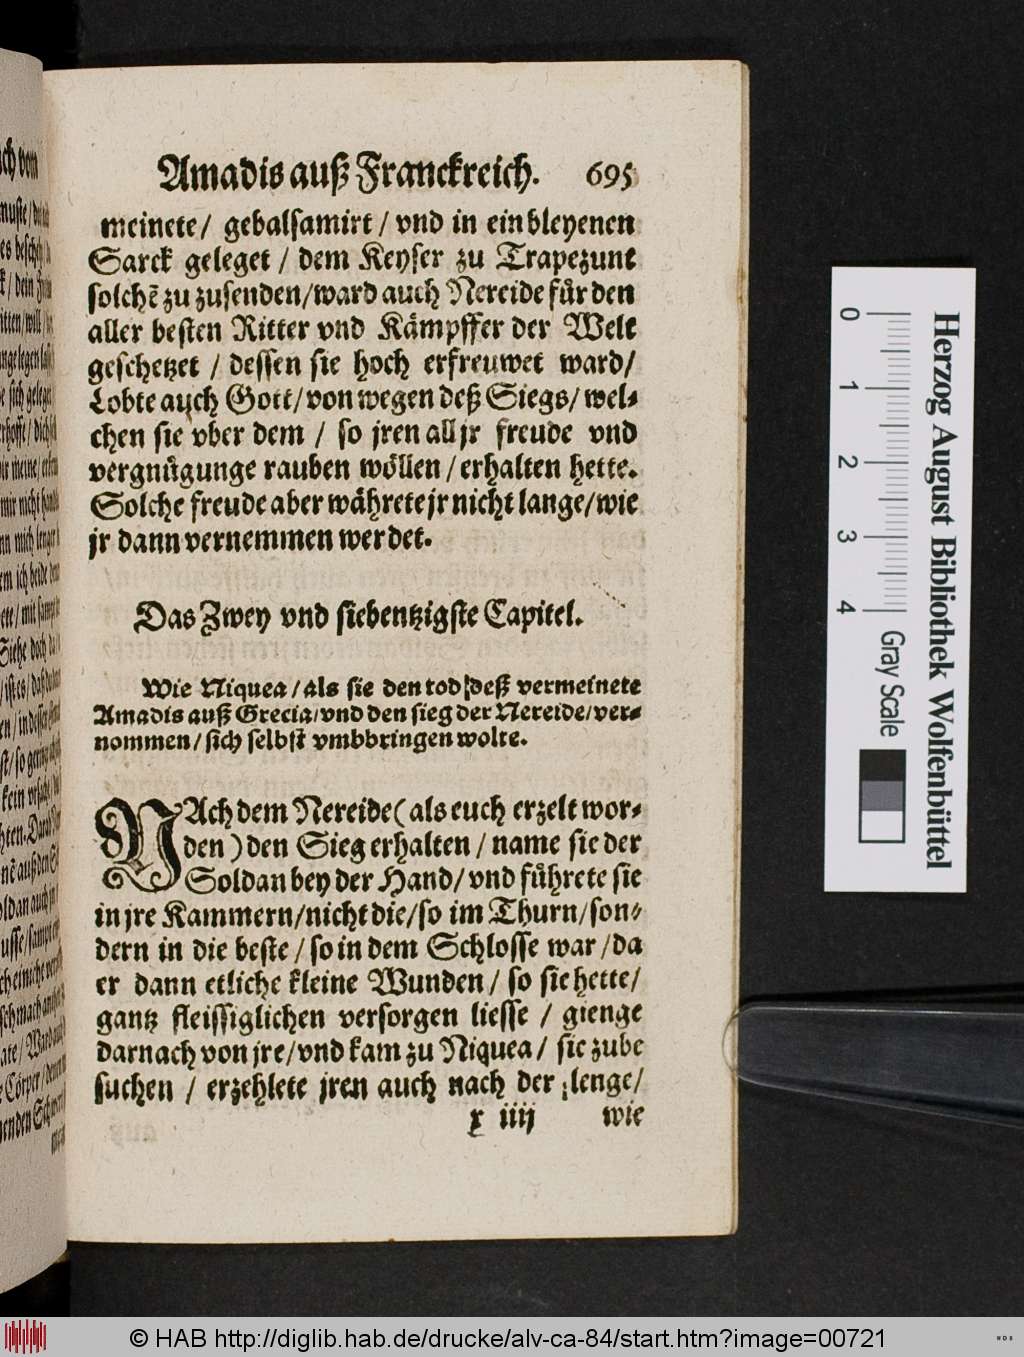 Amadis auß Franckreich. 695
meinete / gebalsamirt / vnd in ein bleyenen
Sarck geleget / dem Keyser zu Trapezunt
solchẽ zu zusenden / ward auch Nereide fůr den
aller besten Ritter vnd Kämpffer der Welt
geschetzet / dessen sie hoch erfreuwet ward /
Lobte auch Gott / von wegen deß Siegs / wel-
chen sie vber dem / so jren all jr freude vnd
vergnůgunge rauben wöllen / erhalten hette.
Solche freude aber währete jr nicht lange / wie
jr dann vernemmen werdet.
Das Zwey vnd siebentzigste Capitel.
Wie Niquea / als sie den tod deß vermeinete
Amadis auß Grecia / vnd den sieg der Nereide / ver-
nommen / sich selbst vmbbringen wolte.
NAch dem Nereide (als euch erzelt wor-
den) den Sieg erhalten / name sie der
Soldan bey der Hand / vnd fůhrete sie
in jre Kammern / nicht die / so im Thurn / son-
dern in die beste / so in dem Schlosse war / da
er dann etliche kleine Wunden / so sie hette /
gantz fleissiglichen versorgen liesse / gienge
darnach von jre / vnd kam zu Niquea / sie zube
suchen / erzehlete jren auch nach der lenge /
x iiij wie
Herzog August Bibliothek Wolfenbüttel
0 1 2 3 4 Gray Scale
© HAB http://diglib.hab.de/drucke/alv-ca-84/start.htm?image=00721